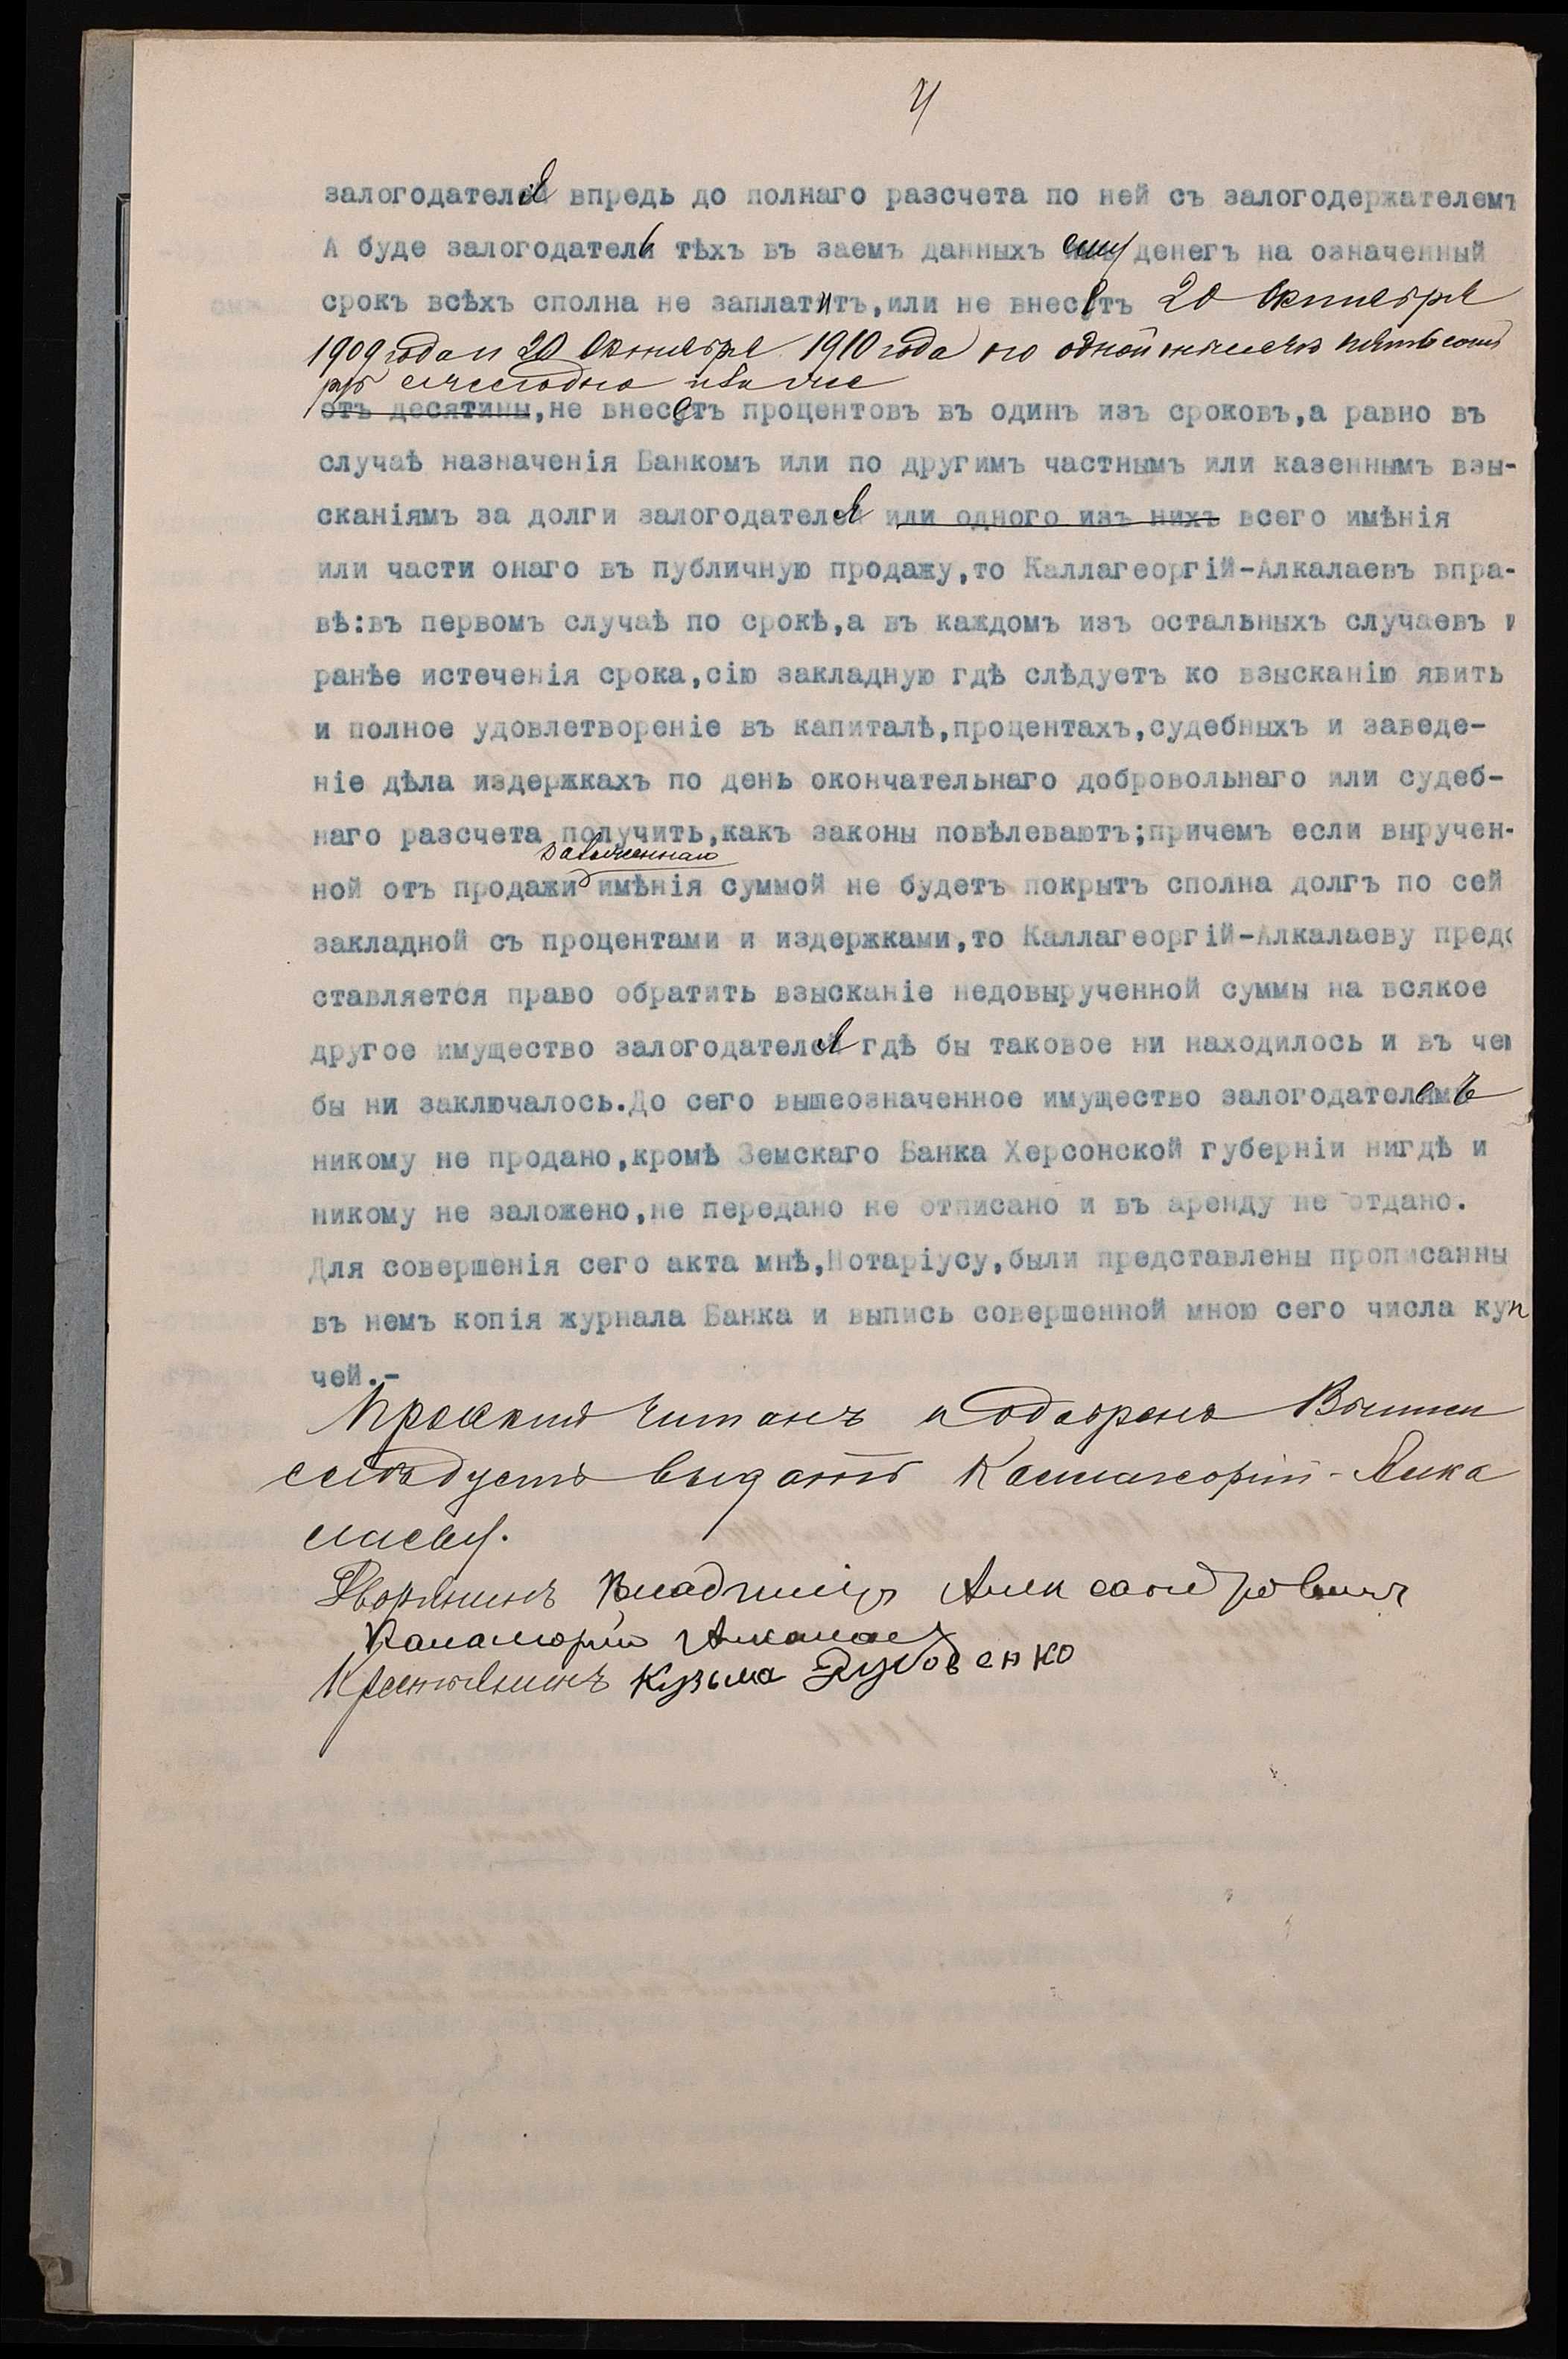 4
залогодателя впредь до полнаго разсчета по ней съ залогодержателемъ
А буде залогодатель тѣхъ въ заемъ данныхъ ему денегъ на означенный
срокъ всѣхъ сполна не заплатитъ,или не внесетъ 20 Октября
1909 года и 20 Октября 1910 года по одной тысячѣ пятьсотъ
руб ежегодно
отъ десятины,не внесетъ процентовъ въ одинъ изъ сроковъ,а равно въ
случаѣ назначенія Банкомъ или по другимъ частнымъ или казеннымъ взы-
сканіямъ за долги залогодателя или одного изъ нихъ всего имѣнія
или части онаго въ публичную продажу,то Каллагеоргій-Алкалаевъ впра-
вѣ:въ первомъ случаѣ по срокѣ,а въ каждомъ изъ остальныхъ случаевъ и
ранѣе истеченія срока,сію закладную гдѣ слѣдуетъ ко взысканію явить
и полное удовлетвореніе въ капиталѣ,процентахъ,судебныхъ и заведе-
ніе дѣла издержкахъ по день окончательнаго добровольнаго или судеб-
наго разсчета получить,какъ законы повѣлеваютъ;причемъ если выручен-
заложеннаго
ной отъ продажи имѣнія суммой не будетъ покрытъ сполна долгъ по сей
закладной съ процентами и издержками,то Каллагеоргій-Алкалаеву предо
ставляется право обратить взысканіе недовырученной суммы на всякое
другое имущество залогодателя гдѣ бы таковое ни находилось и въ чем
бы ни заключалось.До сего вышеозначенное имущество залогодателемъ
никому не продано,кромѣ Земскаго Банка Херсонской губерніи нигдѣ и
никому не заложено,не передано не отписано и въ аренду не отдано.
Для совершенія сего акта мнѣ,Нотаріусу,были представлены прописанны
въ немъ копія журнала Банка и выпись совершенной мною сего числа куп
чей.-
Проектъ читанъ и одобренъ Выпись
слѣдуетъ выдать Каллагеоргій-Алка
лаеву.
Дворянинъ Владиміръ Александровичъ
Калагеоргій Алкалаевъ
Крестьянинъ Кузьма Дубовенко